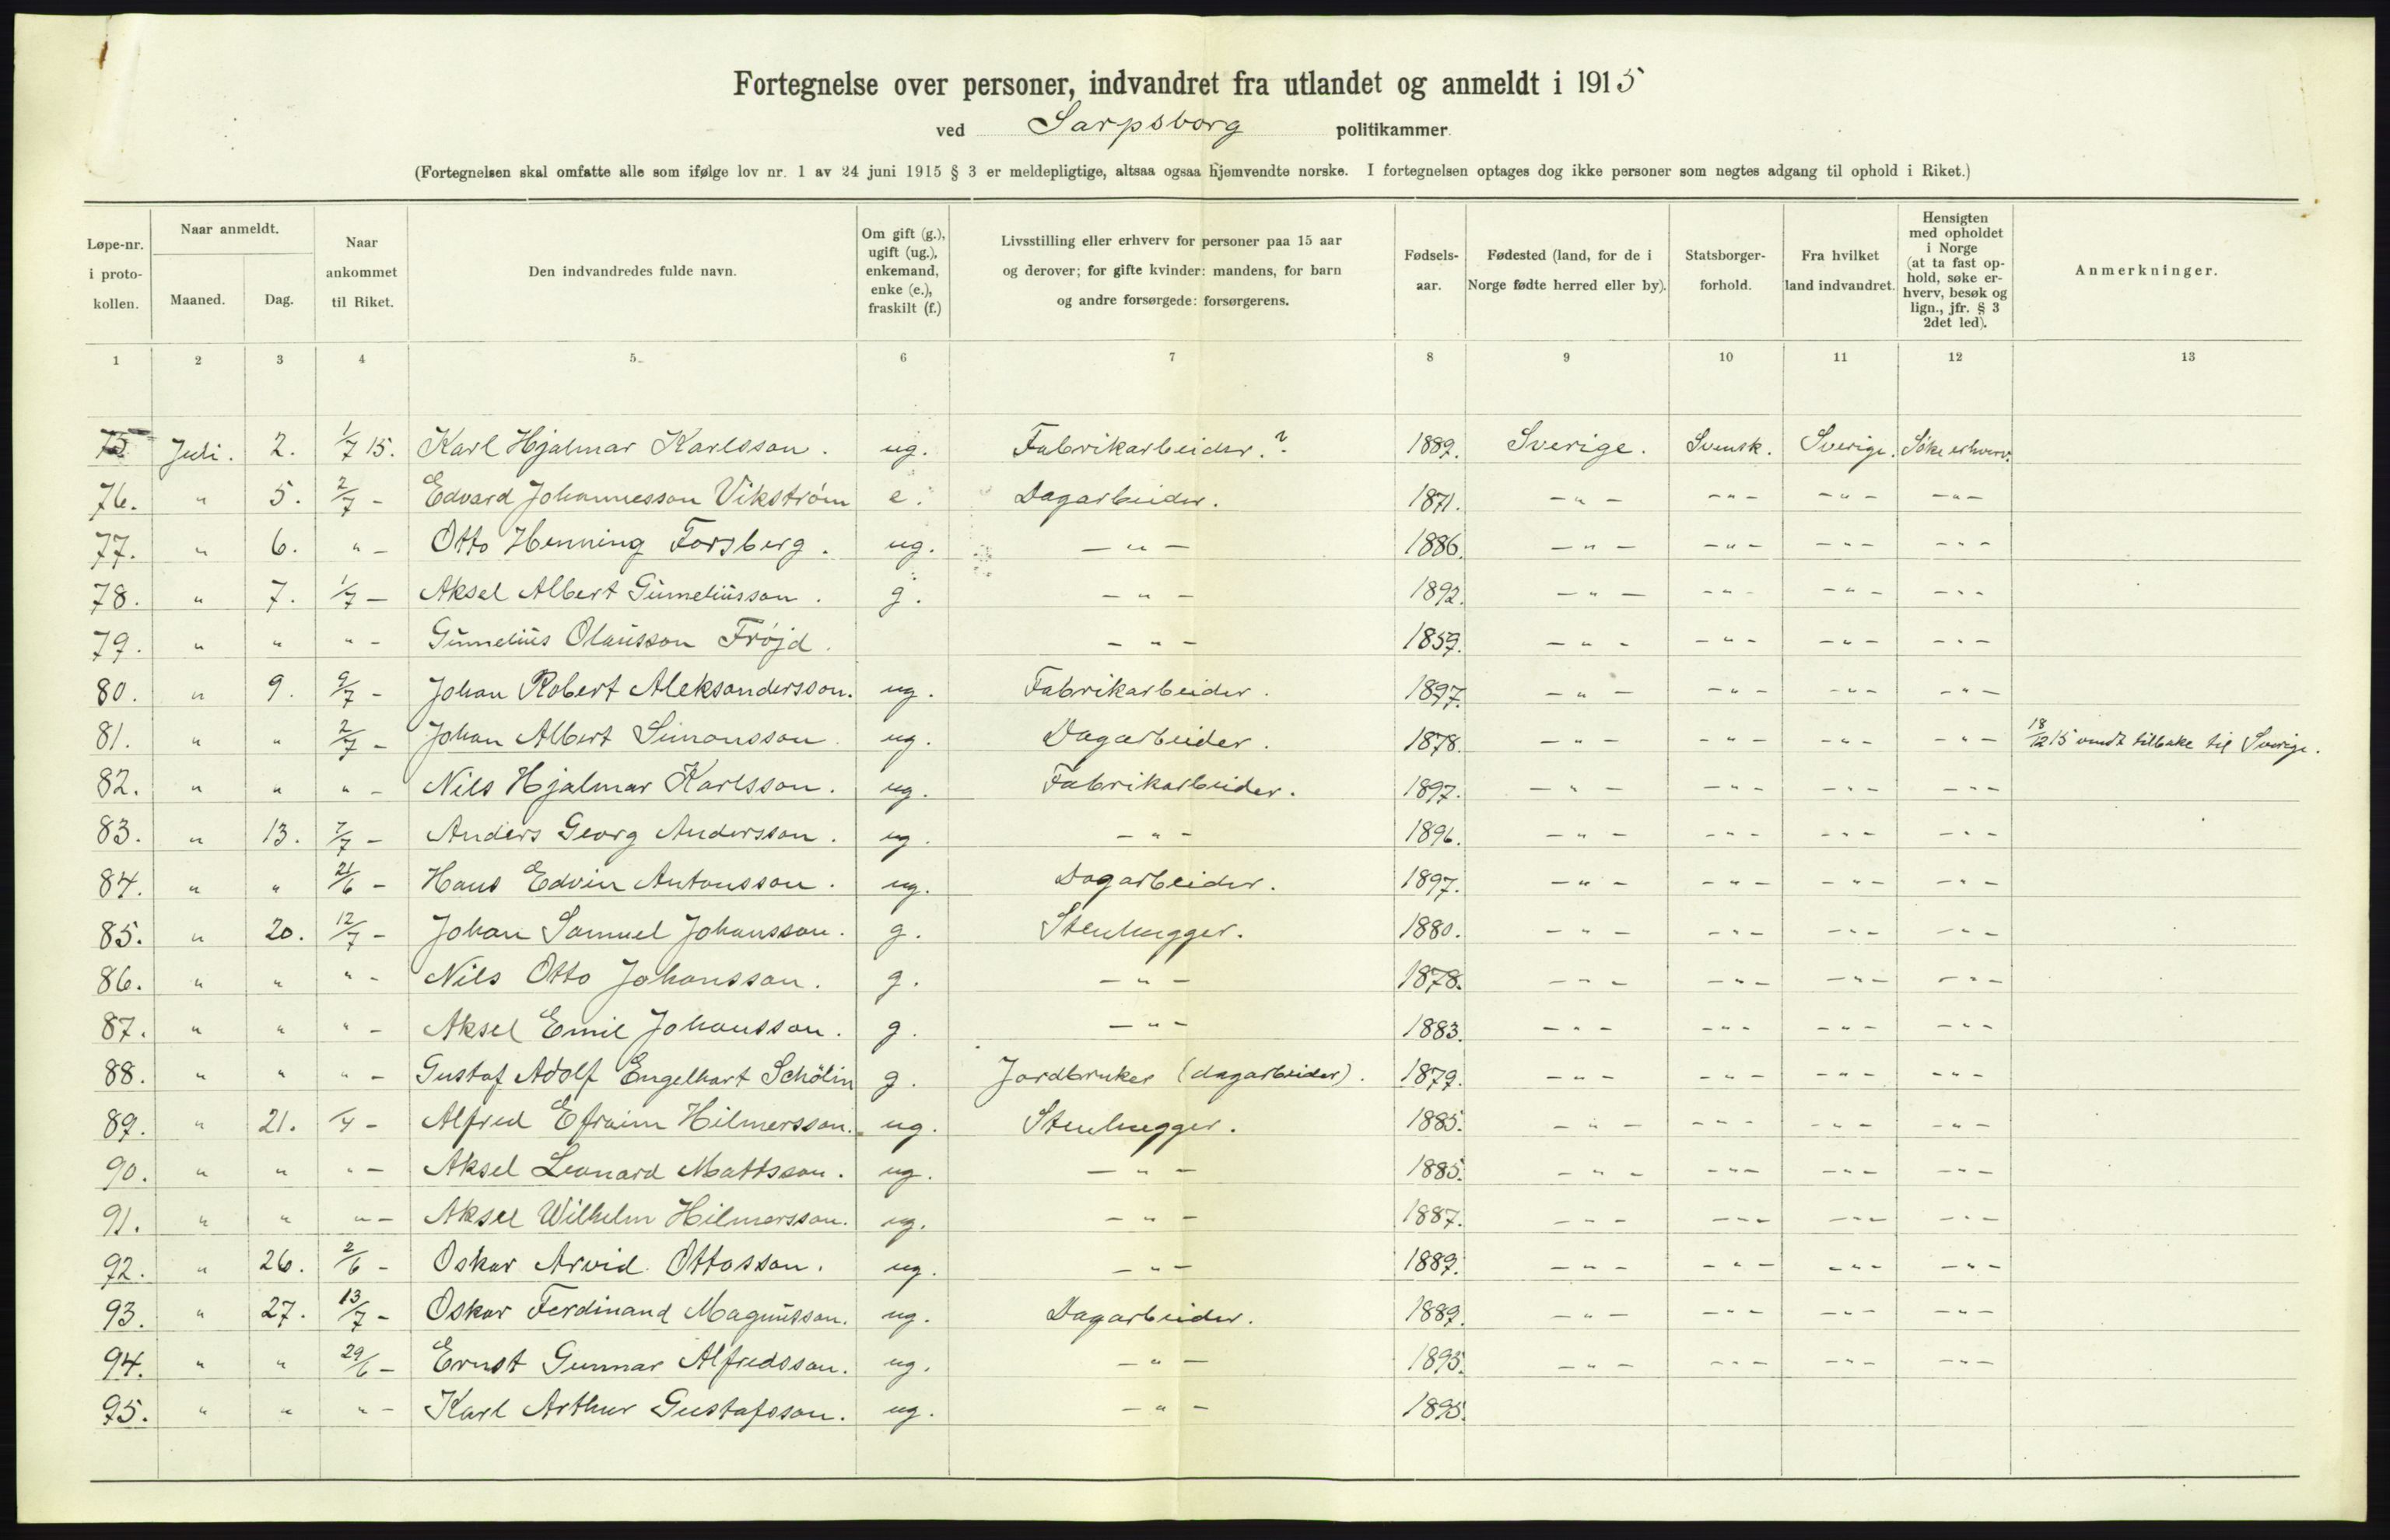 Fortegnelse over personer, indvandret fra utlandet og anmeldt i 1915
ved Sarpsborg politikammer.
(Fortegnelsen skal omfatte alle som ifølge lov nr. 1 av 24 juni 1915 § 3 er meldepligtige, altsaa ogsaa hjemvendte norske. I fortegnelsen optages dog ikke personer som negtes adgang til ophold i Riket.)
Løpe-nr. i proto-kollen. | Naar anmeldt. Maaned. | Dag. | Naar ankommet til Riket. | Den indvandredes fulde navn. | Om gift (g.), ugift (ug.), enkemand, enke (e.), fraskilt (f.) | Livsstilling eller erhverv for personer paa 15 aar og derover; for gifte kvinder: mandens, for barn og andre forsørgede: forsørgerens. | Fødsels-aar. | Fødested (land, for de i Norge fødte herred eller by). | Statsborger-forhold. | Fra hvilket land indvandret. | Hensigten med opholdet i Norge (at ta fast op-hold, søke er-hverv, besøk og lign., jfr. § 3 2det led). | Anmerkninger.
1 2 3 4 5 6 7 8 9 10 11 12 13
75. Juli. 2. 1/7 15. Karl Hjalmar Karlsson. ug. Fabrikarbeider.? 1889. Sverige. Svensk. Sverige. Søke erhverv.
76. " 5. 2/7 - Edvard Johannesson Vikstrøm e. Dagarbeider. 1871. -"- -"- -"- -"-
77. " 6. " - Otto Henning Forsberg. ug. -"- 1886. -"- -"- -"- -"-
78. " 7. 1/7 - Aksel Albert Gunneliusson. g. -"- 1892. -"- -"- -"- -"-
79. " " " - Gunnelius Olausson Frøjd. -"- 1859. -"- -"- -"- -"-
80. " 9. 9/7 - Johan Robert Aleksandersson. ug. Fabrikarbeider. 1897. -"- -"- -"- -"-
81. " " 2/7 - Johan Albert Simonsson. ug. Dagarbeider. 1878. -"- -"- -"- -"- 18/12 15 vendt tilbake til Sverige.
82. " " " - Nils Hjalmar Karlsson. ug. Fabrikarbeider. 1897. -"- -"- -"- -"-
83. " 13. 7/7 - Anders Georg Andersson. ug. -"- 1896. -"- -"- -"- -"-
84. " " 21/6 - Hans Edvin Antonsson. ug. Dagarbeider. 1897. -"- -"- -"- -"-
85. " 20. 12/7 - Johan Samuel Johansson. g. Stenhugger. 1880. -"- -"- -"- -"-
86. " " " - Nils Otto Johansson. g. -"- 1878. -"- -"- -"- -"-
87. " " " - Aksel Emil Johansson. g. -"- 1883. -"- -"- -"- -"-
88. " " " - Gustaf Adolf Engelhart Schölin g. Jordbruker (dagarbeider). 1879. -"- -"- -"- -"-
89. " 21. - Alfred Efraim Hilmersson. ug. Stenhugger. 1885. -"- -"- -"- -"-
90. " " " - Aksel Leonard Mattsson. ug. -"- 1885. -"- -"- -"- -"-
91. " " " - Aksel Wilhelm Hilmersson. ug. -"- 1887. -"- -"- -"- -"-
92. " 26. 2/6 - Oskar Arvid Ottosson. ug. -"- 1889. -"- -"- -"- -"-
93. " 27. 13/7 - Oskar Ferdinand Magnusson. ug. Dagarbeider. 1889. -"- -"- -"- -"-
94. " " 29/6 - Ernst Gunnar Alfredsson. ug. -"- 1895. -"- -"- -"- -"-
95. " " " - Karl Arthur Gustafsson. ug. -"- 1895.